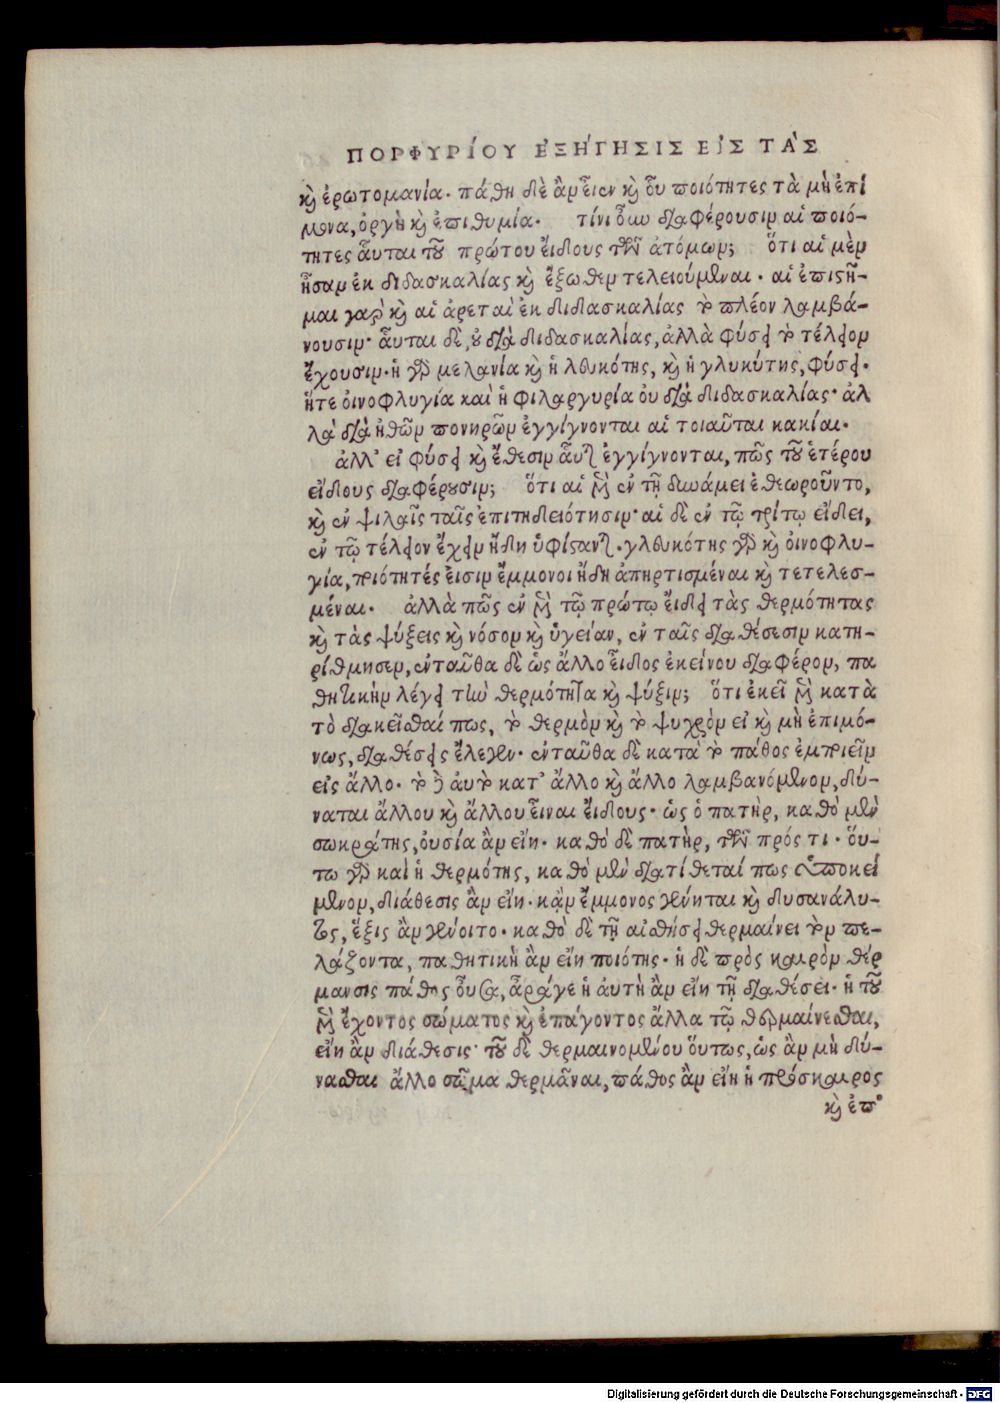 ΠΟΡΦΥΡΊΟΥ ἘΞΉΓΗΣΙΣ ΕἸΣ ΤᾺΣ
καὶ ἐρωτομανία. πάθη δὲ ἂν εἶεν καὶ οὐ ποιότητες τὰ μὴ ἐπί
μονα, ὀργὴ καὶ ἐπιθυμία. τίνι οὖν διαφέρουσιν αἱ ποιό-
τητες αὗται τοῦ πρώτου εἴδους τῶν ἀτόμων; ὅτι αἱ μὲν
ἦσαν ἐκ διδασκαλίας καὶ ἔξωθεν τελειούμεναι. αἱ ἐπιστῆ-
μαι γὰρ καὶ αἱ ἀρεταὶ ἐκ διδασκαλίας τὸ πλέον λαμβά-
νουσιν· αὗται δὲ, οὐ διὰ διδασκαλίας, ἀλλὰ φύσει τὸ τέλειον
ἔχουσιν. ἡ γὰρ μελανία καὶ ἡ λευκότης, καὶ ἡ γλυκύτης, φύσει.
ἥτε οἰνοφλυγία καὶ ἡ φιλαργυρία οὐ διὰ διδασκαλίας· ἀλ
λὰ διὰ ἠθῶν πονηρῶν ἐγγίγνονται αἱ τοιαῦται κακίαι.
ἀλλ' εἰ φύσει καὶ ἔθεσιν αὗται ἐγγίγνονται, πῶς τοῦ ἑτέρου
εἴδους διαφέρουσιν; ὅτι αἱ μὲν ἐν τῇ δυνάμει ἐθεωροῦντο,
καὶ ἐν ψιλαῖς ταῖς ἐπιτηδειότησιν· αἱ δὲ ἐν τῷ τρίτῳ εἴδει,
ἐν τῷ τέλειον ἔχειν ἤδη ὑφίστανται. γλευκότης γὰρ καὶ οἰνοφλυ-
γία, ποιότητές εἰσιν ἔμμονοι ἤδη ἀπηρτισμέναι καὶ τετελεσ-
μέναι. ἀλλὰ πῶς ἐν μὲν τῷ πρώτῳ εἴδει τὰς θερμότητας
καὶ τὰς ψύξεις καὶ νόσον καὶ ὑγείαν, ἐν ταῖς διαθέσεσιν κατη-
ρίθμησεν, ἐνταῦθα δὲ ὡς ἄλλο εἶδος ἐκείνου διαφέρον, πα
θητικὴν λέγει τὴν θερμότητα καὶ ψύξιν; ὅτι ἐκεῖ μὲν κατὰ
τὸ διακεῖσθαί πως, τὸ θερμὸν καὶ τὸ ψυχρὸν εἰ καὶ μὴ ἐπιμό-
νως, διαθέσεις ἔλεγεν. ἐνταῦθα δὲ κατὰ τὸ πάθος ἐμποιεῖν
εἰς ἄλλο. τὸ δὲ αὐτὸ κατ' ἄλλο καὶ ἄλλο λαμβανόμενον, δύ-
ναται ἄλλου καὶ ἄλλου εἶναι εἴδους· ὡς ὁ πατὴρ, καθὸ μὲν
σωκράτης, οὐσία ἂν εἴη. καθὸ δὲ πατὴρ, τῶν πρός τι. οὕ-
τω γὰρ καὶ ἡ θερμότης, καθὸ μὲν διατίθεταί πως ὑποκεί
μενον, διάθεσις ἂν εἴη. κἂν ἔμμονος γένηται καὶ δυσανάλυ-
τος, ἕξις ἂν γένοιτο. καθὸ δὲ τῇ αἰσθήσει θερμαίνει τὸν πε-
λάζοντα, παθητικὴ ἂν εἴη ποιότης. ἡ δὲ πρὸς καιρὸν θέρ
μανσις πάθος οὖσα, ἆράγε ἡ αὐτὴ ἂν εἴη τῇ διαθέσει. ἡ τοῦ
μὲν ἔχοντος σώματος καὶ ἐπάγοντος ἄλλα τῷ θερμαίνεσθαι,
εἴη ἂν διάθεσις· τοῦ δὲ θερμαινομένου οὕτως, ὡς ἂν μὴ δύ-
νασθαι ἄλλο σῶμα θερμᾶναι, πάθος ἂν εἴη ἡ πρόσκαιρος
καὶ ἐπ'
Digitalisierung gefördert durch die Deutsche Forschungsgemeinschaft - DFG